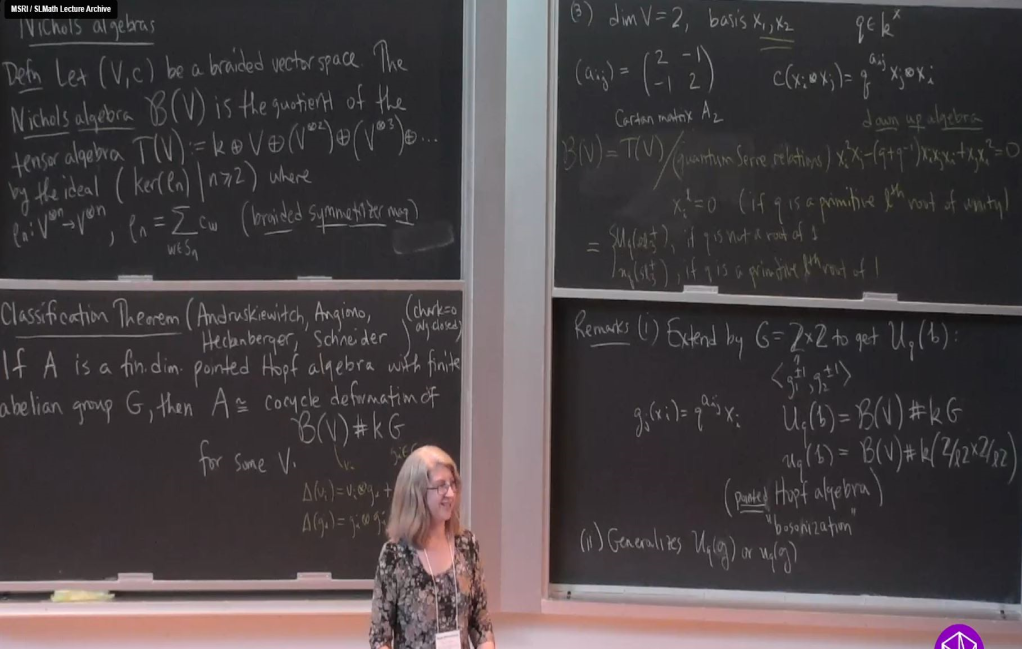 MSRI / SLMath Lecture Archive
Nichols algebras
Defn Let (V,c) be a braided vector space. The
Nichols algebra B(V) is the quotient of the
tensor algebra T(V) := k ⊕ V ⊕ (V^{⊗2}) ⊕ (V^{⊗3}) ⊕ ...
by the ideal ( ker(ρ_n) | n⩾2 ) where
ρ_n: V^{⊗n} → V^{⊗n}, ρ_n = Σ_{w∈S_n} c_w (braided symmetrizer map)
Classification Theorem (Andruskiewitch, Angiono,
Heckenberger, Schneider) (char k=0
alg. closed)
If A is a fin. dim. pointed Hopf algebra with finite
abelian group G, then A ≅ cocycle deformation of
B(V)#kG
for some V.
Δ(v_i) = v_i⊗g_i +
Δ(g_i) = g_i⊗g_i
(3) dim V=2, basis x_1, x_2 q∈k^×
(a_{ij}) = (2 -1
-1 2) c(x_i⊗x_j) = q^{a_{ij}} x_j⊗x_i
Cartan matrix A_2 down up algebra
B(V) = T(V) / (quantum Serre relations) x_i^2 x_j-(q+q^{-1})x_i x_j x_i + x_j x_i^2 = 0
x_i^ℓ=0 (if q is a primitive ℓ^{th} root of unity)
= { U_q(sl_3^+), if q is not a root of 1
u_q(sl_3^+), if q is a primitive ℓ^{th} root of 1
Remarks (i) Extend by G = Z×Z to get U_q(b):
⟨g_1^{±1}, g_2^{±1}⟩
g_j(x_i) = q^{a_{ij}} x_i U_q(b) = B(V)#kG
u_q(b) = B(V)#k(Z/ℓZ×Z/ℓZ)
(pointed Hopf algebra)
"bosonization"
(ii) Generalizes U_q(g) or u_q(g)